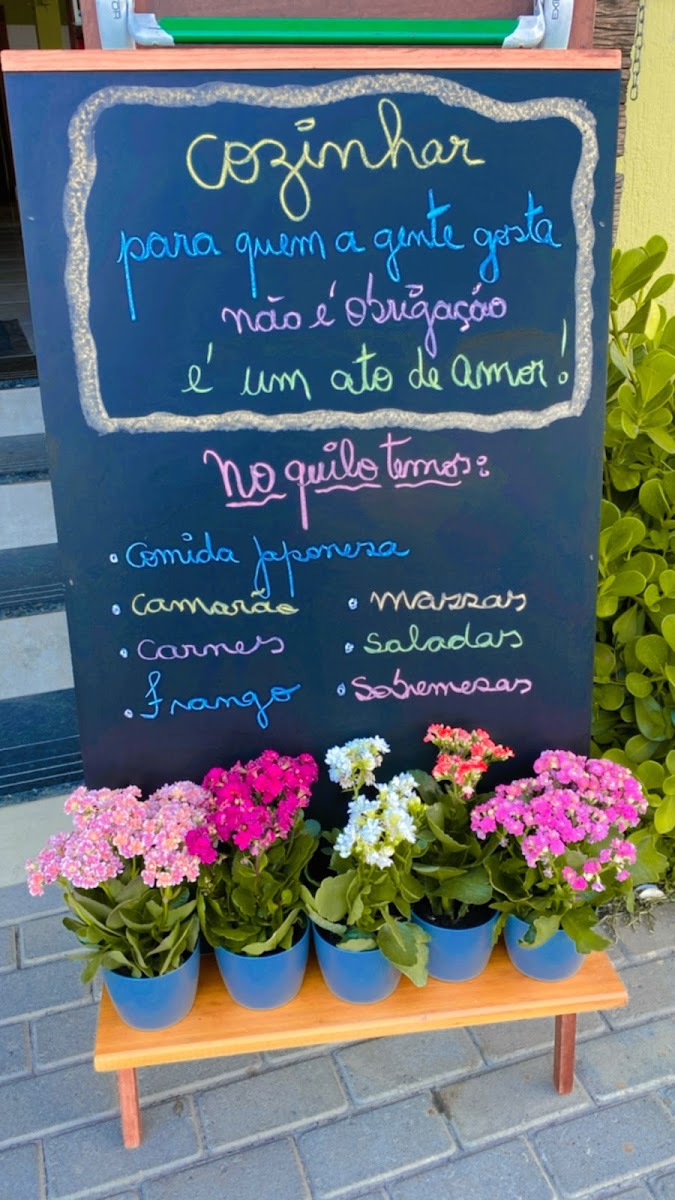 Cozinhar
para quem a gente gosta
não é obrigação
é um ato de amor!
No quilo temos:
• Comida Japonesa
• Camarão
• Massas
• Carnes
• Saladas
• Frango
• Sobremesas